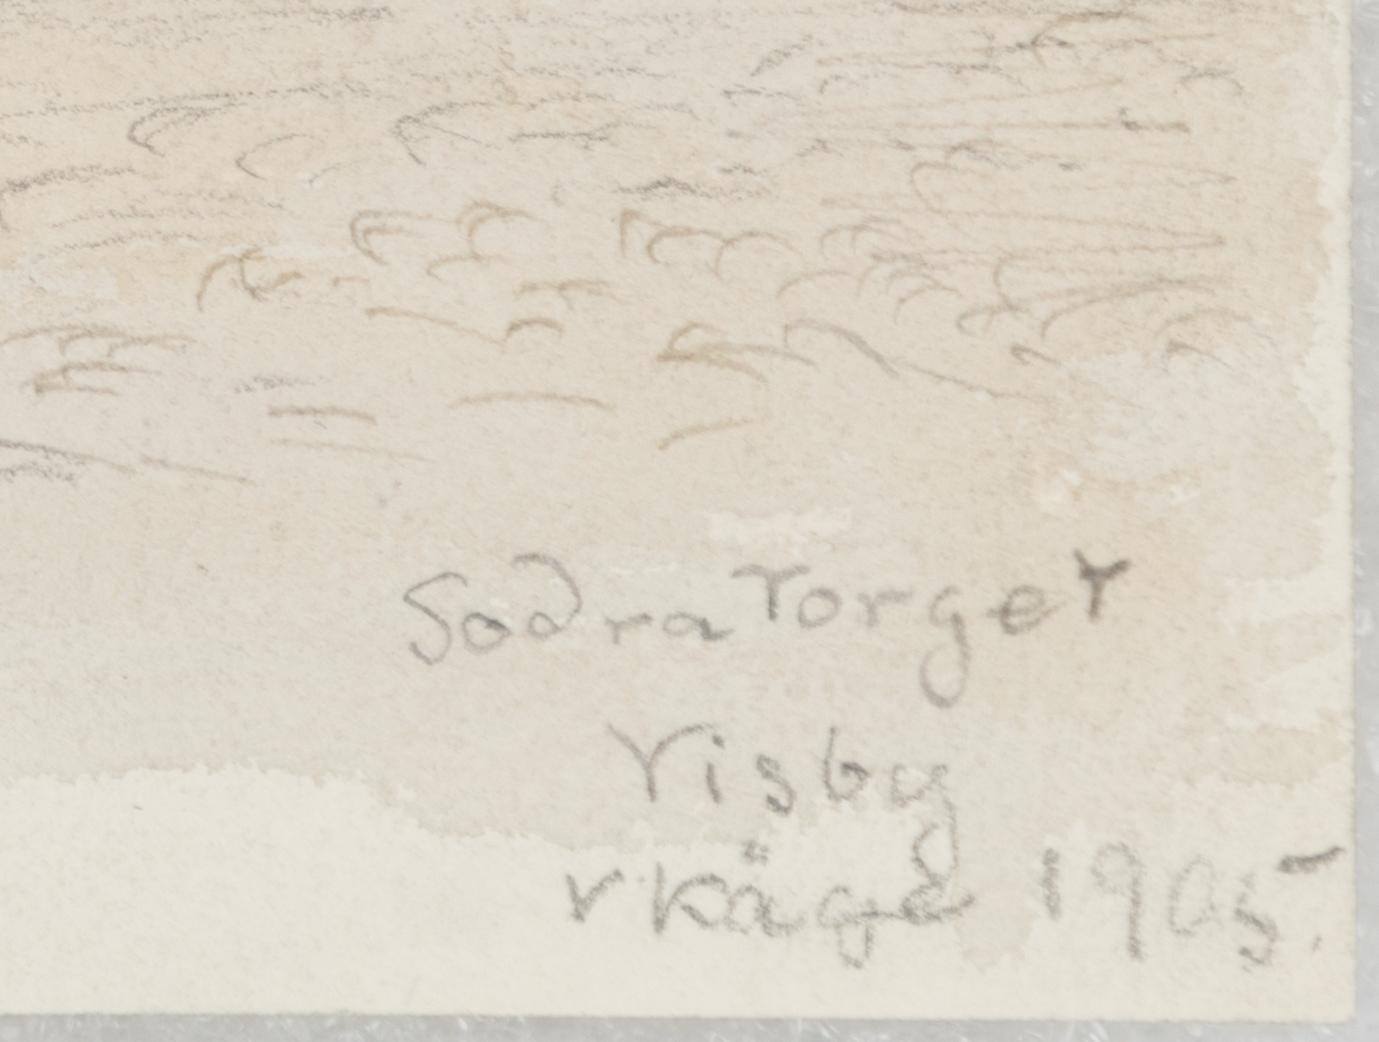 Sodra Torget
Visby
V Kåge 1905.